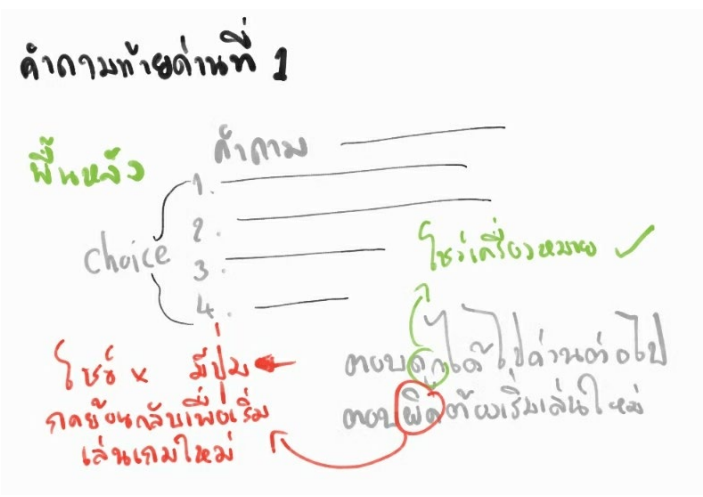 คำถามท้ายด่านที่ 1
พื้นหลัง
คำถาม
choice
1.
2.
3.
4.
โชว์เครื่องหมาย ✓
ตอบถูกได้ไปด่านต่อไป
ตอบผิดต้องเริ่มเล่นใหม่
โชว์ × มีปุ่ม
กดย้อนกลับเพื่อเริ่ม
เล่นเกมใหม่